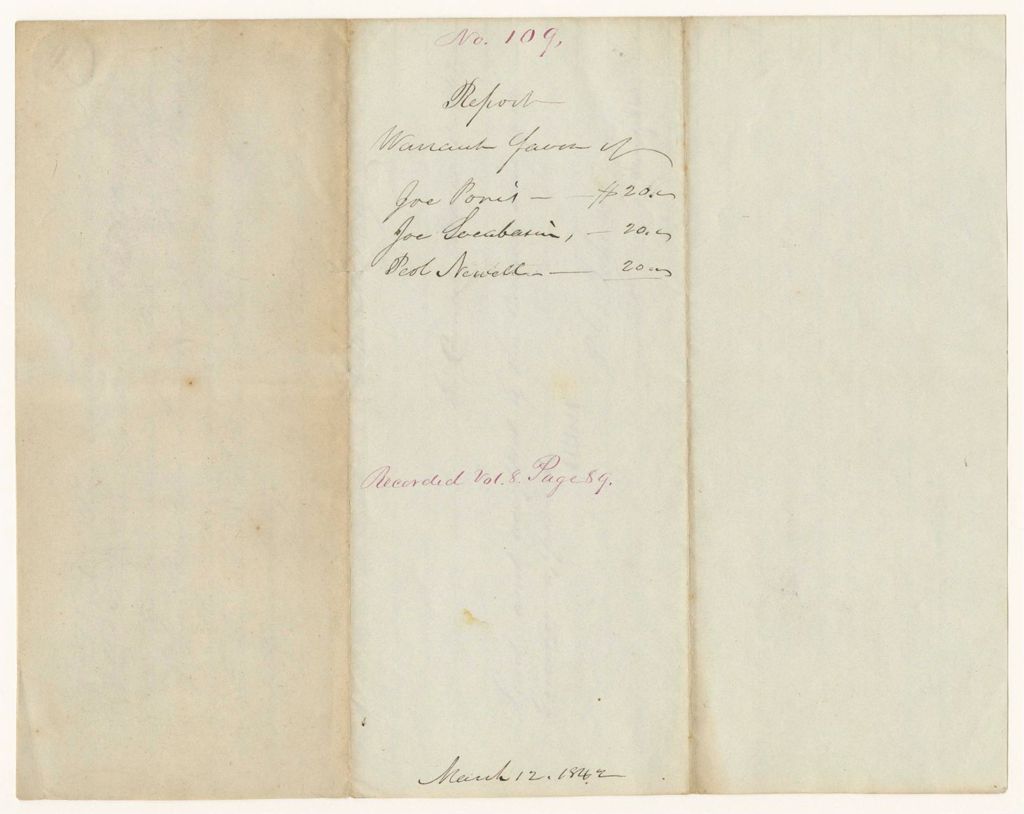 No. 109.
Report
Warrant favor of
Joe Poris — — $20.00
Joe Socabasin, — 20.00
Peol Newell — 20.00
Recorded Vol. 8. Page 89.
March 12. 1842